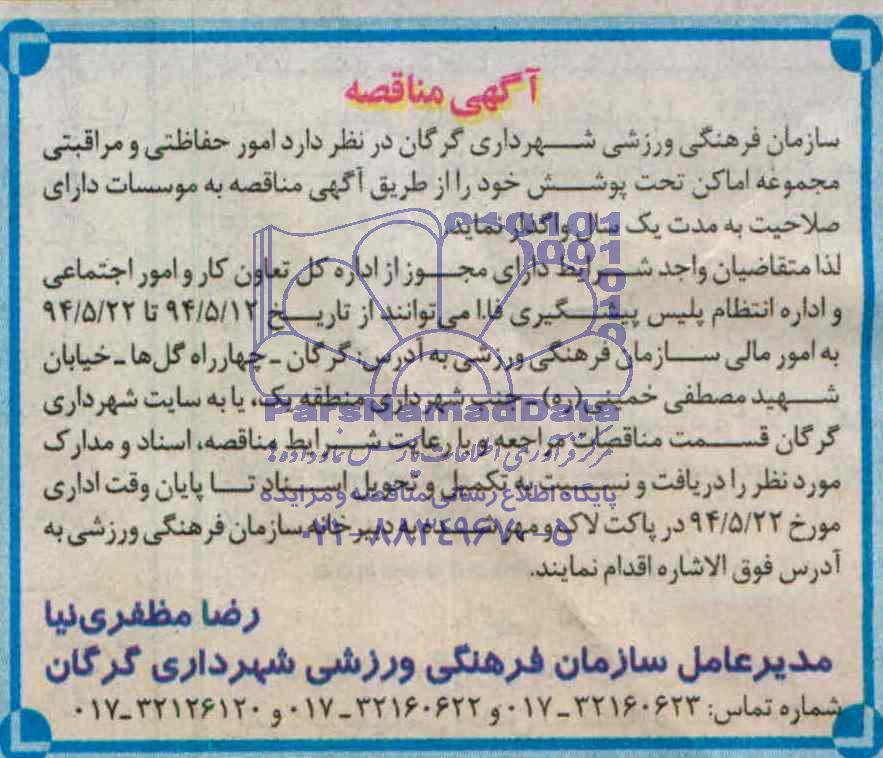 آگهی مناقصه
سازمان فرهنگی ورزشی شهرداری گرگان در نظر دارد امور حفاظتی و مراقبتی
مجموعه اماکن تحت پوشش خود را از طریق آگهی مناقصه به موسسات دارای
صلاحیت به مدت یک سال واگذار نماید.
لذا متقاضیان واجد شرایط دارای مجوز از اداره کل تعاون کار و امور اجتماعی
و اداره انتظام پلیس پیشگیری فا.ا می‌توانند از تاریخ ۹۴/۵/۱۲ تا ۹۴/۵/۲۲
به امور مالی سازمان فرهنگی ورزشی به آدرس: گرگان ـ چهارراه گل‌ها ـ خیابان
شهید مصطفی خمینی(ره) ـ جنب شهرداری منطقه یک، یا به سایت شهرداری
ParsNamadData
گرگان قسمت مناقصات مراجعه و با رعایت شرایط مناقصه، اسناد و مدارک
مرکز فرآوری اطلاعات پارس نماد داده‌ها
مورد نظر را دریافت و نسبت به تکمیل و تحویل اسناد تا پایان وقت اداری
پایگاه اطلاع رسانی مناقصه و مزایده
مورخ ۹۴/۵/۲۲ در پاکت لاک و مهر شده به دبیرخانه سازمان فرهنگی ورزشی به
۰۲۱-۸۸۳۴۹۶۷۰-۵
آدرس فوق الاشاره اقدام نمایند.
رضا مظفری‌نیا
مدیرعامل سازمان فرهنگی ورزشی شهرداری گرگان
شماره تماس: ۳۲۱۶۰۶۲۳ ـ ۰۱۷ و ۳۲۱۶۰۶۲۲ ـ ۰۱۷ و ۳۲۱۲۶۱۲۰ ـ ۰۱۷